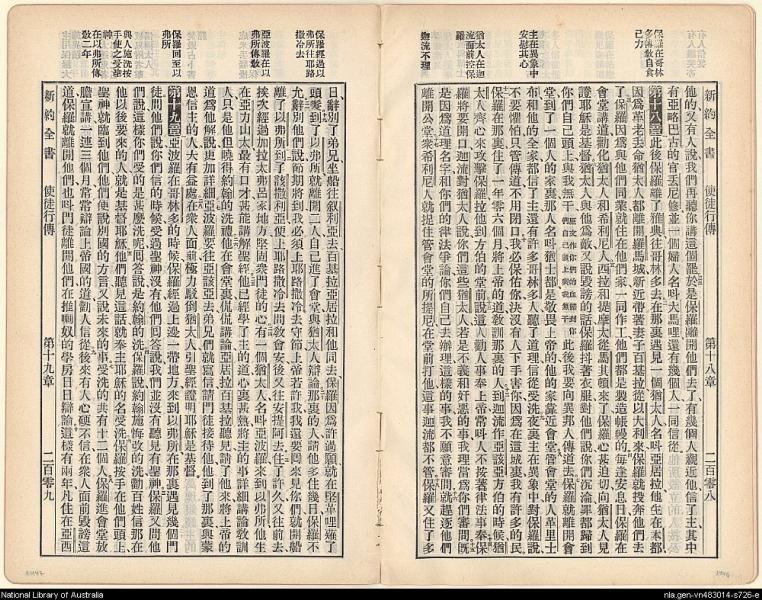 新約全書 使徒行傳 第十八章 二百零八
保羅在哥林
多傳教自食
己力
主在異象中
安慰其心
猶太人在迦
流面前控保
羅
迦流不理
他的又有人說我們再聽你講這個罷於是保羅離開他們去了有幾個人親近他信了主其中
有亞略巴古的官丟尼修並一個婦人名叫大馬哩還有幾個人一同信從
第十八章此後保羅離了雅典往哥林多去在那裏遇見一個猶太人名叫亞居拉他生在本都
因爲革老丟命猶太人都離開羅馬城新近帶著妻子百基拉從以大利來保羅就投奔他們去
了保羅因爲與他們同業就住在他們家一同作工他們都是製造帳幔的每逢安息日保羅在
會堂講道勸化猶太人和希利尼人西拉和提摩太從馬其頓來了保羅心甚迫切向猶太人見
證耶穌是基督猶太人與他爲敵又說毀謗的話保羅抖著衣服對他們說你們沉淪罪都歸到
你們自己頭上與我無干
此後我要向異邦人傳道去保羅就離開會
堂到了一個人的家裏那人名叫猶士都是敬畏上帝的他的家靠近會堂管會堂的人革里士
布和他的全家都信了主還有許多哥林多人聽了道理信從受洗夜裏主在異象中對保羅說
不要懼怕只管傳道不用閉口我必保佑你決沒有人下手害你因爲在這城裏我有許多的民
保羅在那裏住了一年零六個月將上帝的道教訓那裏的人到迦流作亞該亞方伯的時候猶
太人齊心來攻擊保羅拉他到方伯的堂前說這人勸人事奉上帝常叫人不按著律法事奉保
羅將要開口迦流對猶太人說你們這些猶太人若是不義和奸惡的事我理當爲你們審問既
是因爲道理名字和你們的律法爭論你們自己去辦理這樣的事我不願意審問就趕逐他們
離開公堂衆希利尼人就揪住管會堂的所提尼在堂前打他這事迦流都不管保羅又住了多
保羅經過以
弗所往耶路
撒冷去
亞波羅在以
弗所傳教
保羅回至以
弗所
與人施洗按
手使之受聖
神
在以弗所傳
教二年
日辭別了弟兄坐船往敘利亞去百基拉亞居拉和他同去保羅因爲許過願就在堅革哩薙了
頭髮到了以弗所就離開二人自己進了會堂與猶太人辯論那裏的人請他多住幾日保羅不
允辭別他們說節期將到我必須上耶路撒冷去守節上帝若許我我還要回來見你們就開船
離了以弗所到了該撒利亞便上耶路撒冷去問教會安後又往安提阿去住了許久又往前去
挨次經過加拉太弗呂家地方堅固衆門徒的心有一個猶太人名叫亞波羅來到以弗所他生
在亞力山太最有口才甚能講解聖經他已經學了主的道心裏甚熱將主的事詳細講論敎訓
人只是他但曉得約翰的洗禮他在會堂裏侃侃講論亞居拉百基拉聽見就請了他來將上帝的
道爲他解說更加詳細亞波羅要往亞該亞去弟兄們就寫信請門徒接待他他到了那裏與蒙
恩信主的人大有益處在衆人面前極力駁倒猶太人引聖經證明耶穌是基督
第十九章亞波羅在哥林多的時候保羅經過上邊一帶地方來到以弗所在那裏遇見幾個門
徒問他們說你們信的時候受過聖神沒有他們回答說我們並沒有聽見有聖神保羅又問他
們說這樣你們受的是甚麼洗呢回答說是約翰的洗保羅說約翰施悔改的洗勸百姓信那在
他以後要來的人就是基督耶穌他們聽見這話就奉主耶穌的名受洗保羅按手在他們頭上
聖神就臨到他們他們便說別國的方言又說未來的事受洗的共有十二個人保羅進會堂放
膽宣講一連三個月常常辯論上帝國的道勸人信從後來有人心硬不信在衆人面前毀謗這
道保羅就離開他們也叫門徒離開他們在推喇奴的學房日日辯論這樣有兩年凡住在亞西
新約全書 使徒行傳 第十九章 二百零九
National Library of Australia
nla.gen-vn483014-s726-e